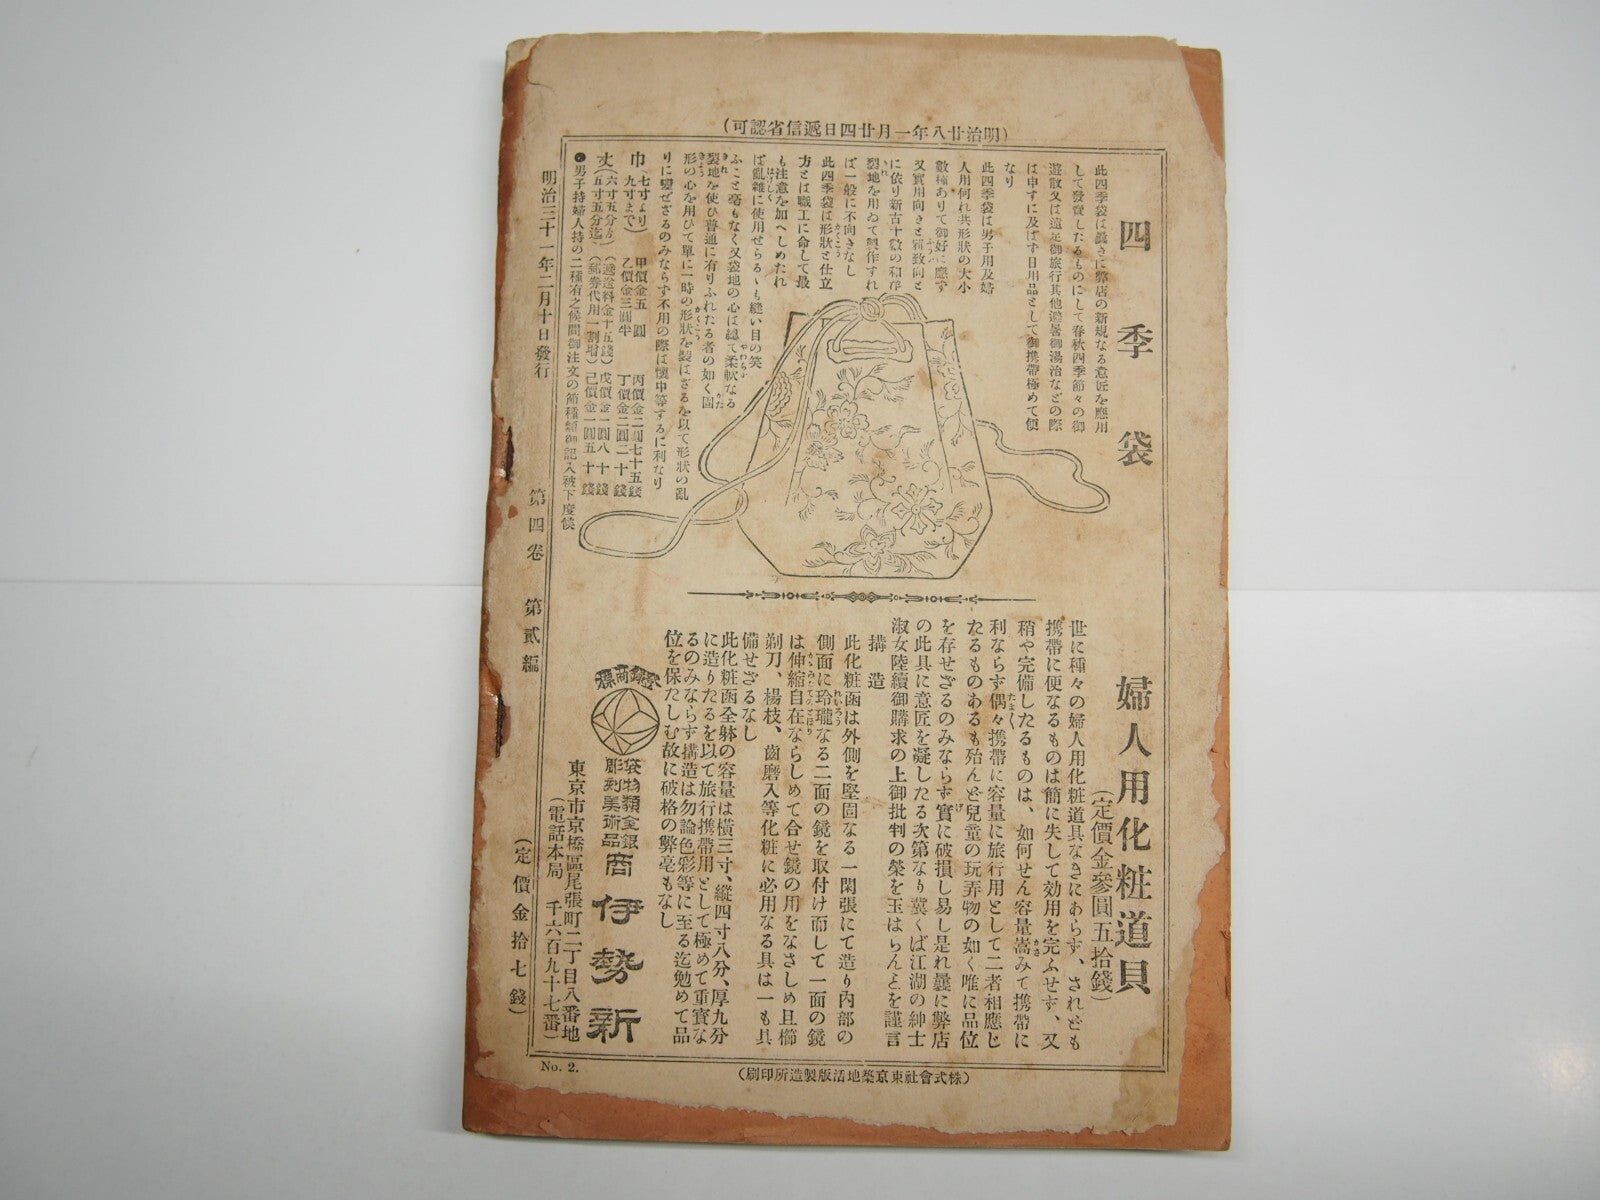 (可認省信遞日四廿月一年八廿治明)
四季袋
此四季袋は曩きに弊店の新規なる意匠を應用
して發賣したるものにして春秋四季節々の御
遊散又は遠足御旅行其他避暑御湯治などの際
は申すに及ばず日用品として御携帶極めて便
なり
此四季袋は男子用及婦
人用何れ共形狀の大小
數種ありて御好に應ず
又實用向きと雅致向と
に依り新古十數の和洋
裂地を用ゐて製作すれ
ば一般に不向きなし
此四季袋は形狀と仕立
方とは職工に命して最
も注意を加へしめたれ
ば亂雜に使用せらるゝも縫い目の笑
ふこと毫もなく又袋地の心は總て柔軟なる
裂地を使ひ普通に有りふれたる者の如く固
形の心を用ひて單に一時の形狀を裝はざるを以て形狀の亂
りに變ぜざるのみならず不用の際は懷中等するに利なり
巾(七寸より九寸まで) 甲價金五圓 乙價金三圓半 丙價金二圓七十五錢 丁價金二圓二十錢
丈(六寸五分方五寸五分迄) (遞送料金十五錢)(郵券代用一割増) 戊價金一圓八十錢 己價金一圓五十錢
●男子持婦人持の二種有之候間御注文の節種類御記入被下度候
婦人用化粧道具
(定價金參圓五拾錢)
世に種々の婦人用化粧道具なきにあらず、されども
携帶に便なるものは簡に失して効用を完ふせず、又
稍や完備したるものは、如何せん容量嵩みて携帶に
利ならず偶々携帶に容量に旅行用として二者相應じ
たるものあるも殆んど兒童の玩弄物の如く唯に品位
を存せざるのみならず實に破損し易し是れ曩に弊店
の此具に意匠を凝したる次第なり冀くば江湖の紳士
淑女陸續御購求の上御批判の榮を玉はらんとを謹言
搆造
此化粧函は外側を堅固なる一閑張にて造り內部の
側面に玲瓏なる二面の鏡を取付け而して一面の鏡
は伸縮自在ならしめて合せ鏡の用をなさしめ且櫛
剃刀、楊枝、齒磨入等化粧に必用なる具は一も具
備せざるなし
此化粧函全躰の容量は橫三寸、縱四寸八分、厚九分
に造りたるを以て旅行携帶用として極めて重寶な
るのみならず搆造は勿論色彩等に至る迄勉めて品
位を保たしむ故に破格の弊毫もなし
袋物類金銀
彫刻美術品
商 伊勢新
東京市京橋區尾張町二丁目八番地
(電話本局 千六百九十七番)
明治三十一年二月十日發行
第四卷 第貳編
(定價金拾七錢)
No. 2.
(刷印所造製版活地築京東社會式株)